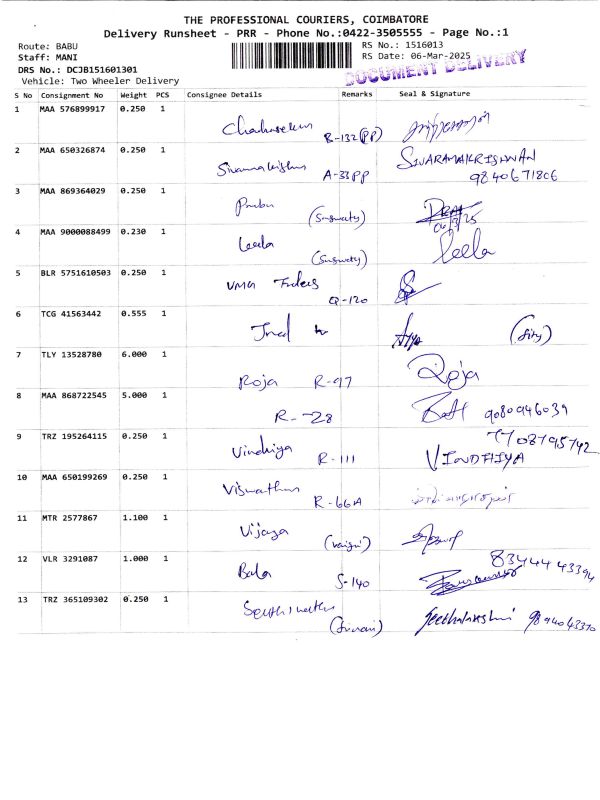 THE PROFESSIONAL COURIERS, COIMBATORE
Delivery Runsheet - PRR - Phone No.:0422-3505555 - Page No.:1
Route: BABU
Staff: MANI
DRS No.: DCJB151601301
Vehicle: Two Wheeler Delivery
RS No.: 1516013
RS Date: 06-Mar-2025
DOCUMENT DELIVERY
S No Consignment No Weight PCS Consignee Details Remarks Seal & Signature
1 MAA 576899917 0.250 1 B-132(PP)
2 MAA 650326874 0.250 1 A-33PP SIVARAMAKRISHNAN
9840671806
3 MAA 869364029 0.250 1 Prabu
4 MAA 9000088499 0.230 1 Leela Leela
5 BLR 5751610503 0.250 1 VMG Q-120
6 TCG 41563442 0.555 1
7 TLY 13528780 6.000 1 Roja R-97 Roja
8 MAA 868722545 5.000 1 R-28 9080946039
9 TRZ 195264115 0.250 1 Vindhiya R-111 7708795742
VINDHIYA
10 MAA 650199269 0.250 1 Viswathan R-66A
11 MTR 2577867 1.100 1 Vijaya
12 VLR 3291087 1.000 1 Bala S-140 8344443394
13 TRZ 365109302 0.250 1 Seethalakshmi 9894043370